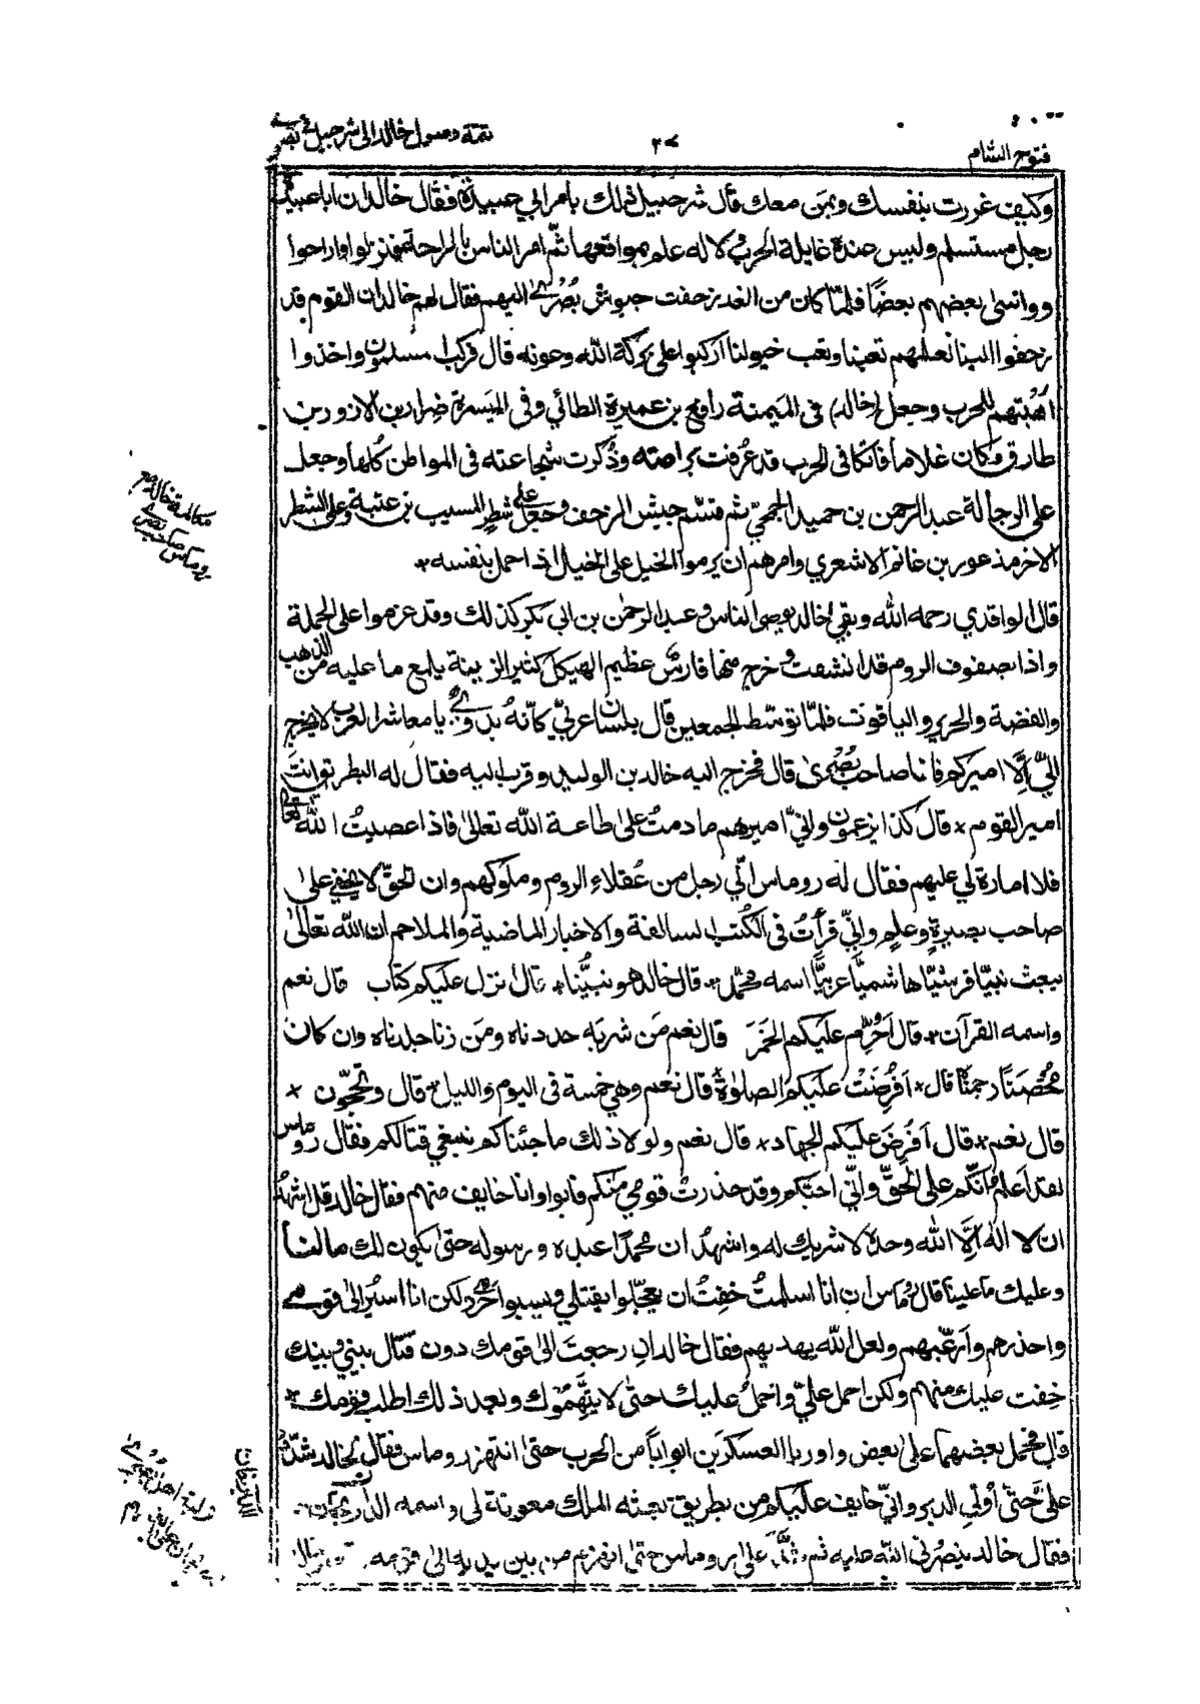 فتوح الشام
٢٧
تتمة وصول خالد الى شرحبيل في بصرى
وكيف غررت بنفسك وبمن معك قال شرحبيل ذلك بامر ابي عبيدة فقال خالد ان ابا عبيدة
رجل مستسلم وليس عنده غايلة الحرب ولا له علم بمواقعها ثم امر الناس بالراحة فنزلوا واراحوا
وواسى بعضهم بعضًا فلمّا كان من الغد زحفت جيوش بُصْرى اليهم فقال لهم خالد ان القوم قد
زحفوا الينا لعلمهم تعبنا وتعب خيولنا اركبوا على بركة الله وعونه قال فركب المسلمون واخذوا
اُهْبَتهم للحرب وجعل (خالد) فى المَيمنة رافع بن عميرة الطائي وفى المَيسرة ضِرار بن الازور بن
طارق وكان غلاماً فاتكا فى الحرب قد عُرفت براعته وذُكرت شجاعته فى المواطن كلها وجعل
على الرجالة عبد الرحمن بن حميد الجمحيّ ثم قسّم جيش الزحف وجعل على شطر المسيب بن عتبة وعلى الشطر
الاخر مذعور بن غانم الاشعري وامرهم ان يرموا الخيل على الخيال اذا حمل بنفسه *
قال الواقدي رحمه الله وبقي خالد يوصى الناس وعبد الرحمٰن بن ابي بكر كذلك وقد عزموا على الحملة
واذا بصفوف الروم قد انشقت وخرج منها فارسٌ عظيم الهيكل كثير الزينة يلمع ما عليه من الذهب
والفضة والحرير والياقوت فلمّا توسّط الجمعين قال بلسان عربيّ كانّهُ بدويّ يا معاشر العرب لا يخرج
اليّ الّا اميركم فانا صاحب بُصْرىٰ قال فخرج اليه خالد بن الوليد وقرب اليه فقال له البطريق انتَ
امير القوم * قال كذا يزعمون وانّي اميرهم ما دمتُ على طاعة الله تعالى فاذا عصيتُ الله تعالى
فلا امارة لي عليهم فقال له روماس انّي رجل من عُقلاء الروم وملوكهم وان الحقّ لا يخفى على
صاحب بصيرةٍ وعلمٍ وانّي قرأتُ فى الكُتب السالفة والاخبار الماضية والملاحم ان الله تعالىٰ
يبعث نبيًّا قرشيًّا هاشميًّا عربيًّا اسمه محمّد * قال خالد هو نبيُّنا * قال انزل عليكم كتاب قال نعم
واسمه القرآن * قال اَحُرِّم عليكم الخَمَر قال نعم مَن شربَه حددناه ومَن زنا جلدناه وان كان
مُحْصَنًا رجمناه قال * اَفُرِضَتْ عليكم الصلوٰة * قال نعم وهي خمسة فى اليوم والليل * قال وتحجّون *
قال نعم * قال اَفُرِضَ عليكم الجهاد * قال نعم ولولا ذلك ما جئناكم نبغي قتالكم فقال روماس
لقد اعلم انّكم على الحقّ وانّي احبّكم وقد حذرتُ قومي منكم فابوا وانا خايف منهم فقال خالد قل اشهدُ
ان لا الٰه الّا الله وحده لا شريك له واشهدُ ان محمدًا عبده ورسوله حتىٰ يكون لك ما لنا
وعليك ما علينا قال روماس ان انا اسلمتُ خفتُ ان يعجّلوا بقتلي ويسبوا حُرمي ولكن انا اسيُر الىٰ قومي
واحذرهم وأرغّبهم ولعل الله يهديهم فقال خالد ان رجعتَ الى قومك دون قتال بيني وبينك
خِفت عليك منهم ولكن احمل عليّ واحملُ عليك حتىٰ لا يتَّهِمُوك وبعد ذلك اطلب قومك *
قال فحمل بعضهما علىٰ بعض واوريا العسكرَين ابواباً من الحرب حتىٰ انتهز روماس فقال لخالد شدّ
علىّ حتىّٰ أُولّي الدبر وانّي خايف عليكم من بطريق بعثه الملك معونة لي واسمه الدريحان
فقال خالد ينصُرني الله عليه ثم شدّ على روماس حتى انهزم من بين يديه الىٰ قومه
مكالمة خالد مع
روماس صاحب بصرى